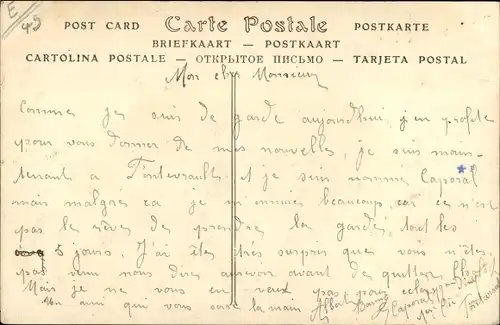 E
49
POST CARD Carte Postale POSTKARTE
BRIEFKAART — POSTKAART
CARTOLINA POSTALE — ОТКРЫТОЕ ПИСЬМО — TARJETA POSTAL
Mon cher Monsieur
Comme je suis de garde aujourdhui j'en profite
pour vous donner de mes nouvelles, je suis main-
tenant a Fontevrault et je suis nommé Caporal
mais malgres ca je m'ennuies beaucoup car ce n'est
pas le rêves de prendre la garde tout les
5 jours. J'ai êtes très surpris que vous n'êtes
pas venu nous dire aurevoir avant de quitter
Mais je ne vous en veux pas pour cela
Un ami qui vous serre la main Albert
Caporal